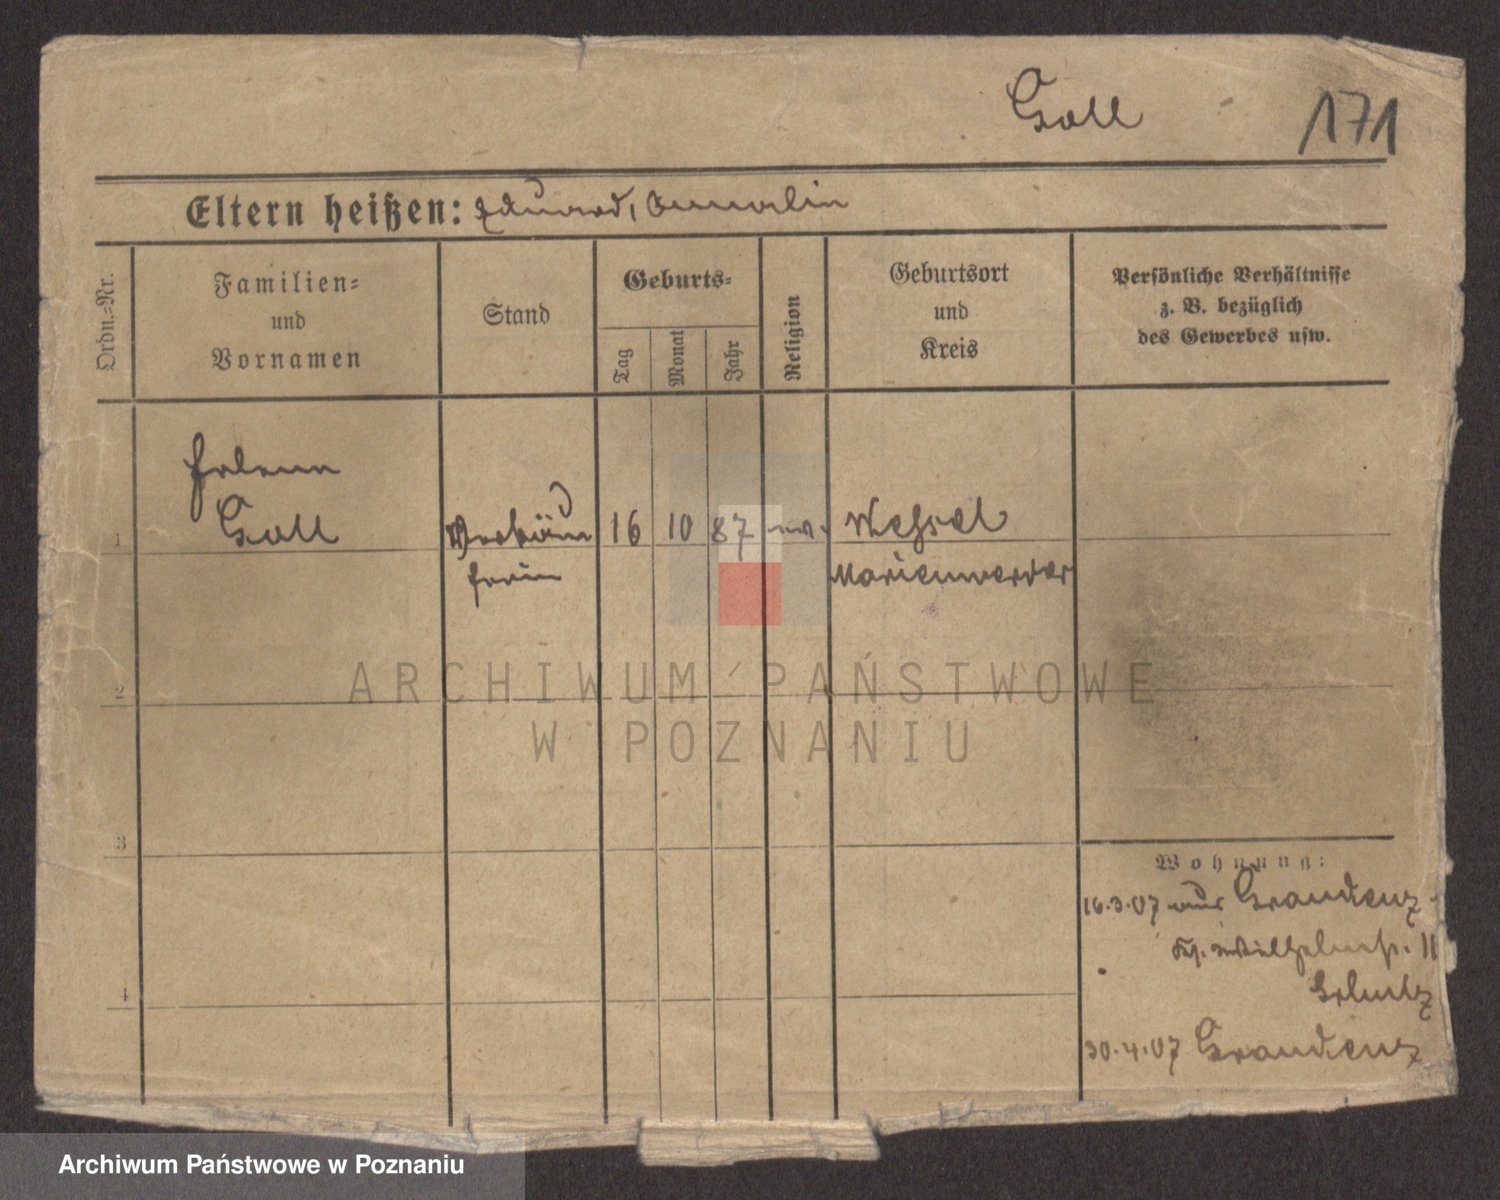 Goll 171
Eltern heißen: Eduard, Amalie
Ordn.=Nr.
Familien=
und
Vornamen
Stand
Geburts=
Tag
Monat
Jahr
Religion
Geburtsort
und
Kreis
Persönliche Verhältnisse
z. B. bezüglich
des Gewerbes usw.
Helene
Goll
1
Verkäu
ferin
16 10 87 ev.
Wessel
Marienwerder
2
3
4
Wohnung:
16.3.07 aus Graudenz
Kg. Wilhelmstr. 11
30.4.07 Graudenz
ARCHIWUM PAŃSTWOWE
W POZNANIU
Archiwum Państwowe w Poznaniu